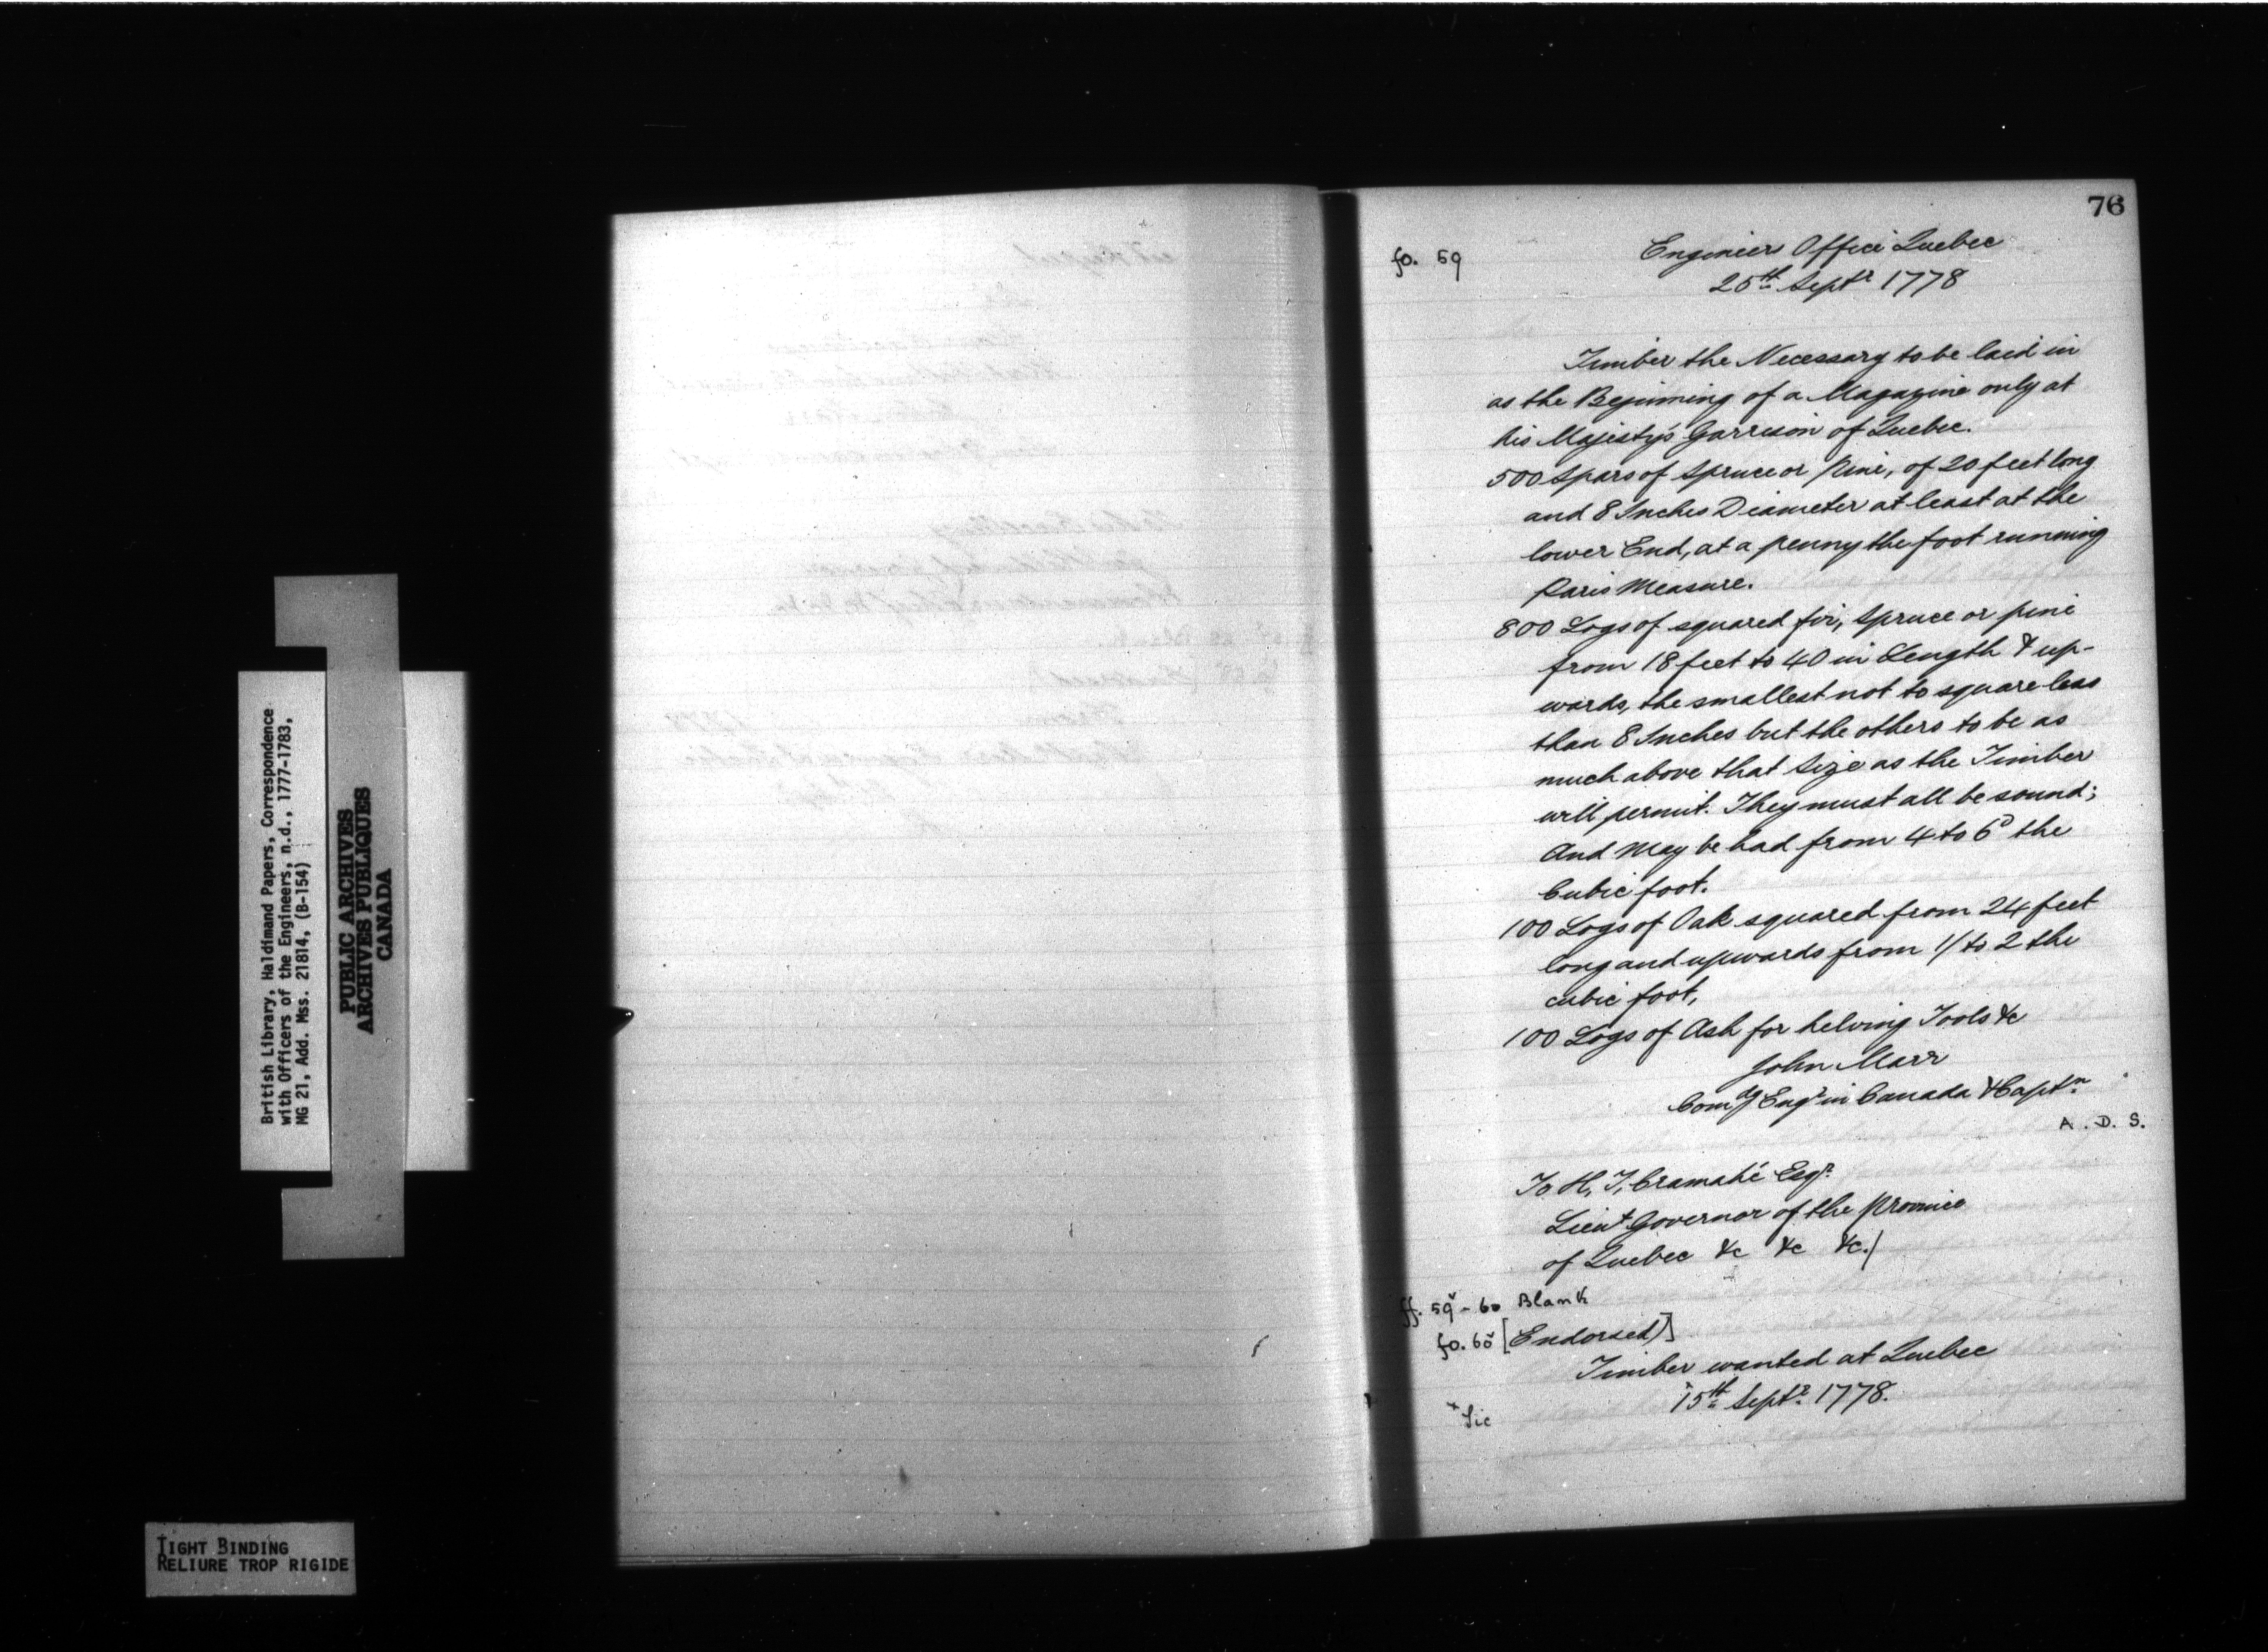 British Library, Haldimand Papers, Correspondence
with Officers of the Engineers, n.d., 1777-1783,
MG 21, Add. Mss. 21814, (B-154)
PUBLIC ARCHIVES
ARCHIVES PUBLIQUES
CANADA
TIGHT BINDING
RELIURE TROP RIGIDE
76
fo. 59
Engineers Office Quebec
25th Septr 1778
Timber the Necessary to be laid in
as the Beginning of a Magazine only at
his Majesty's Garrison of Quebec.
500 Spars of Spruce or Pine, of 20 feet long
and 8 Inches Diameter at least at the
lower End, at a penny the foot running
Paris Measure.
800 Logs of squared fir, Spruce or pine
from 18 feet to 40 in Length & up-
wards, the smallest not to square less
than 8 Inches but the others to be as
much above that Size as the Timber
will permit. They must all be sound;
And May be had from 4 to 6D the
Cubic foot.
100 Logs of Oak squared from 24 feet
long and upwards from 1/ to 2 the
cubic foot,
100 Logs of Ash for helving Tools &c
John Marr
Comdg Engr in Canada & Captn
A. D. S.
To H, T, Cramahé Esqr
Lieut Governor of the Province
of Quebec &c &c &c./
ff. 59v - 60 Blank
fo. 60v [Endorsed)]
Timber wanted at Quebec
x15th Septr 1778.
x Sic